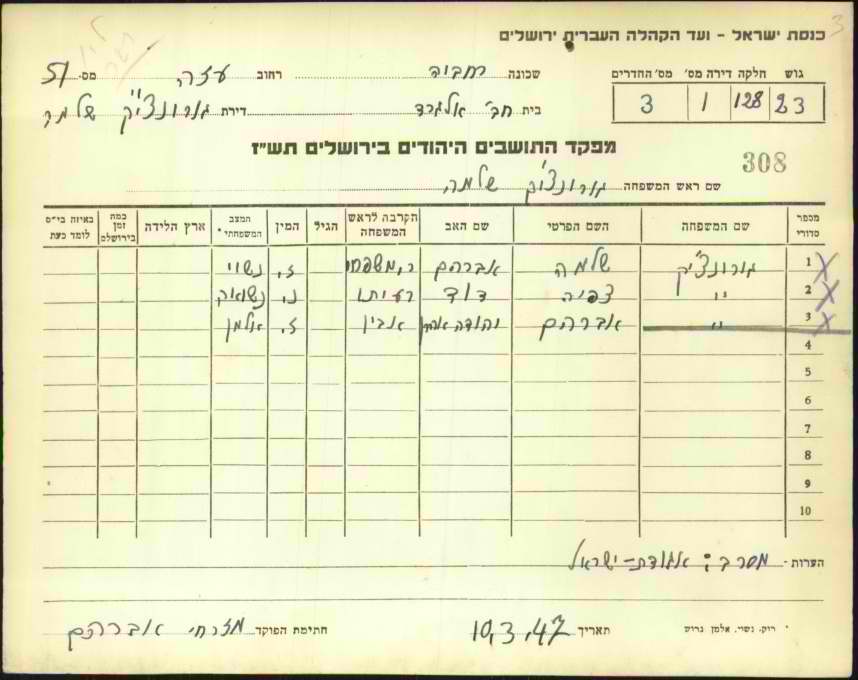 כנסת ישראל - ועד הקהלה העברית ירושלים
גוש חלקה דירה מס' מס' החדרים
23 128 1 3
שכונה רחביה רחוב עזה מס- 51
בית חב' דירת גורונצ'יק שלמה
מפקד התושבים היהודים בירושלים תש"ז
308
שם ראש המשפחה גורונצ'יק שלמה
מספר סדורי שם המשפחה השם הפרטי שם האב הקרבה לראש המשפחה הגיל המין המצב המשפחתי * ארץ הלידה כמה זמן בירושלים באיזה בי"ס לומד כעת
1 גורונצ'יק שלמה אברהם ר. משפחה ז. נשוי
2 " צפיה דוד רעיתו נ. נשואה
3 " אברהם יהודה אהרן אביו ז. אלמן
4
5
6
7
8
9
10
הערות - מסרב: אגודת-ישראל
* רוק, נשוי, אלמן גרוש תאריך 10.3.47 חתימת הפוקד מזרחי אברהם